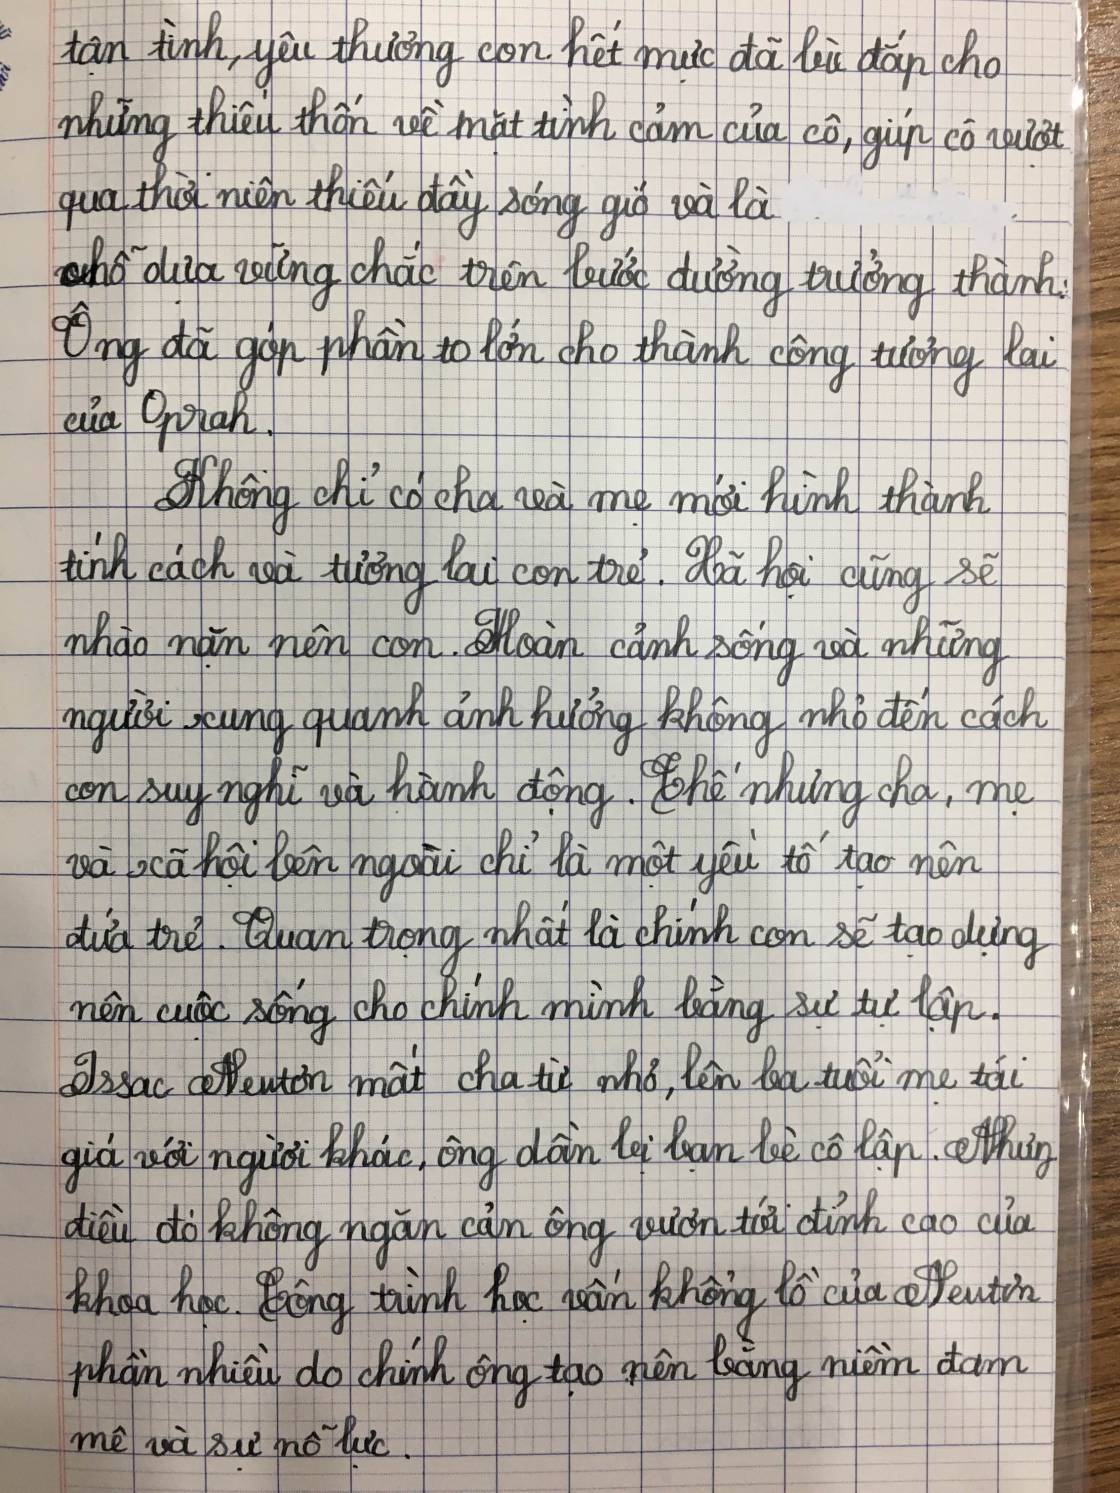 tận tình, yêu thương con hết mực đã bù đắp cho
những thiếu thốn về mặt tình cảm của cô, giúp cô vượt
qua thời niên thiếu đầy sóng gió và là
chỗ dựa vững chắc trên bước đường trưởng thành.
Ông đã góp phần to lớn cho thành công tương lai
của Oprah.
Không chỉ có cha và mẹ mới hình thành
tính cách và tương lai con trẻ. Xã hội cũng sẽ
nhào nặn nên con. Hoàn cảnh sống và những
người xung quanh ảnh hưởng không nhỏ đến cách
con suy nghĩ và hành động. Thế nhưng cha, mẹ
và xã hội bên ngoài chỉ là một yếu tố tạo nên
đứa trẻ. Quan trọng nhất là chính con sẽ tạo dựng
nên cuộc sống cho chính mình bằng sự tự lập.
Issac Newton mất cha từ nhỏ, lên ba tuổi mẹ tái
giá với người khác, ông dần bị bạn bè cô lập. Nhưng
điều đó không ngăn cản ông vươn tới đỉnh cao của
khoa học. Công trình học vấn khổng lồ của Newton
phần nhiều do chính ông tạo nên bằng niềm đam
mê và sự nỗ lực.